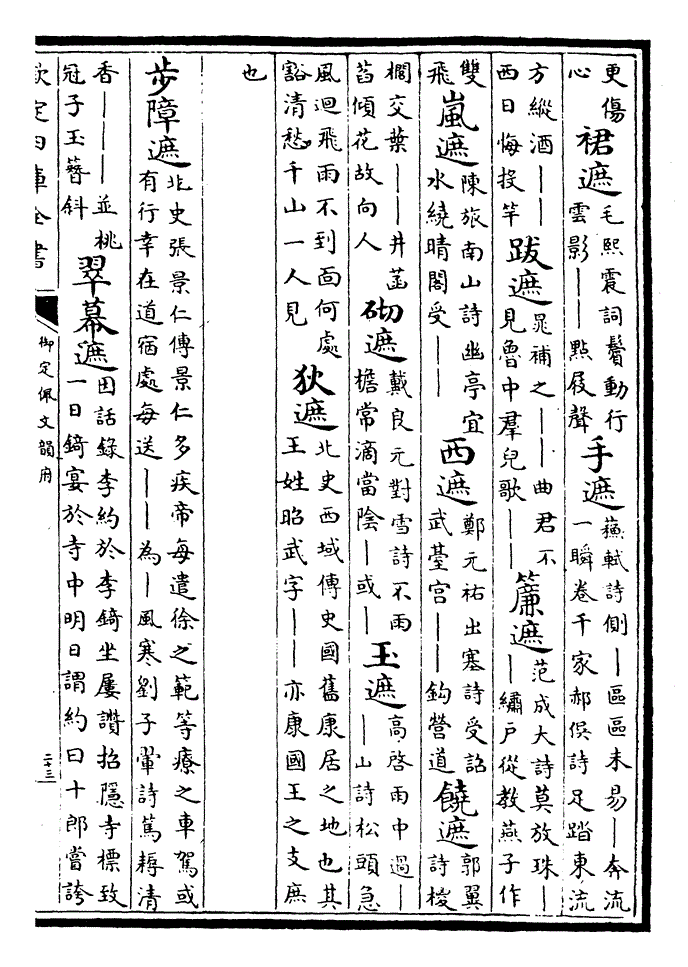 更傷
心
裙遮
毛熙震詞鬢動行
雲影——點屐聲
手遮
蘇軾詩側—區區未易—奔流
一瞬卷千家郝俣詩足踏東流
方縱酒——
西日悔投竿
跋遮
晁補之———曲君不
見魯中羣兒歌——
簾遮
范成大詩莫放珠—
—繡戶從教燕子作
雙
飛
嵐遮
陳旅南山詩幽亭宜
水繞晴閣受——
西遮
鄭元祐出塞詩受詔
武臺宮——鈎營道
饒遮
郭翼
詩椶
櫚交葉——井菡
萏傾花故向人
砌遮
戴良元對雪詩不雨
檐常滴當陰—或—
玉遮
高啓雨中過—
—山詩松頭急
風迴飛雨不到面何處
豁清愁千山一人見
狄遮
北史西域傳史國舊康居之地也其
王姓昭武字——亦康國王之支庶
也
步障遮
北史張景仁傳景仁多疾帝每遣徐之範等療之車駕或
有行幸在道宿處每送——為—風寒劉子翬詩篤耨清
香———並桃
冠子玉簪斜
翠幕遮
因話錄李約於李錡坐屢讚招隱寺標致
一日錡宴於寺中明日謂約曰十郎嘗誇
欽定四庫全書
御定佩文韻府
二十三